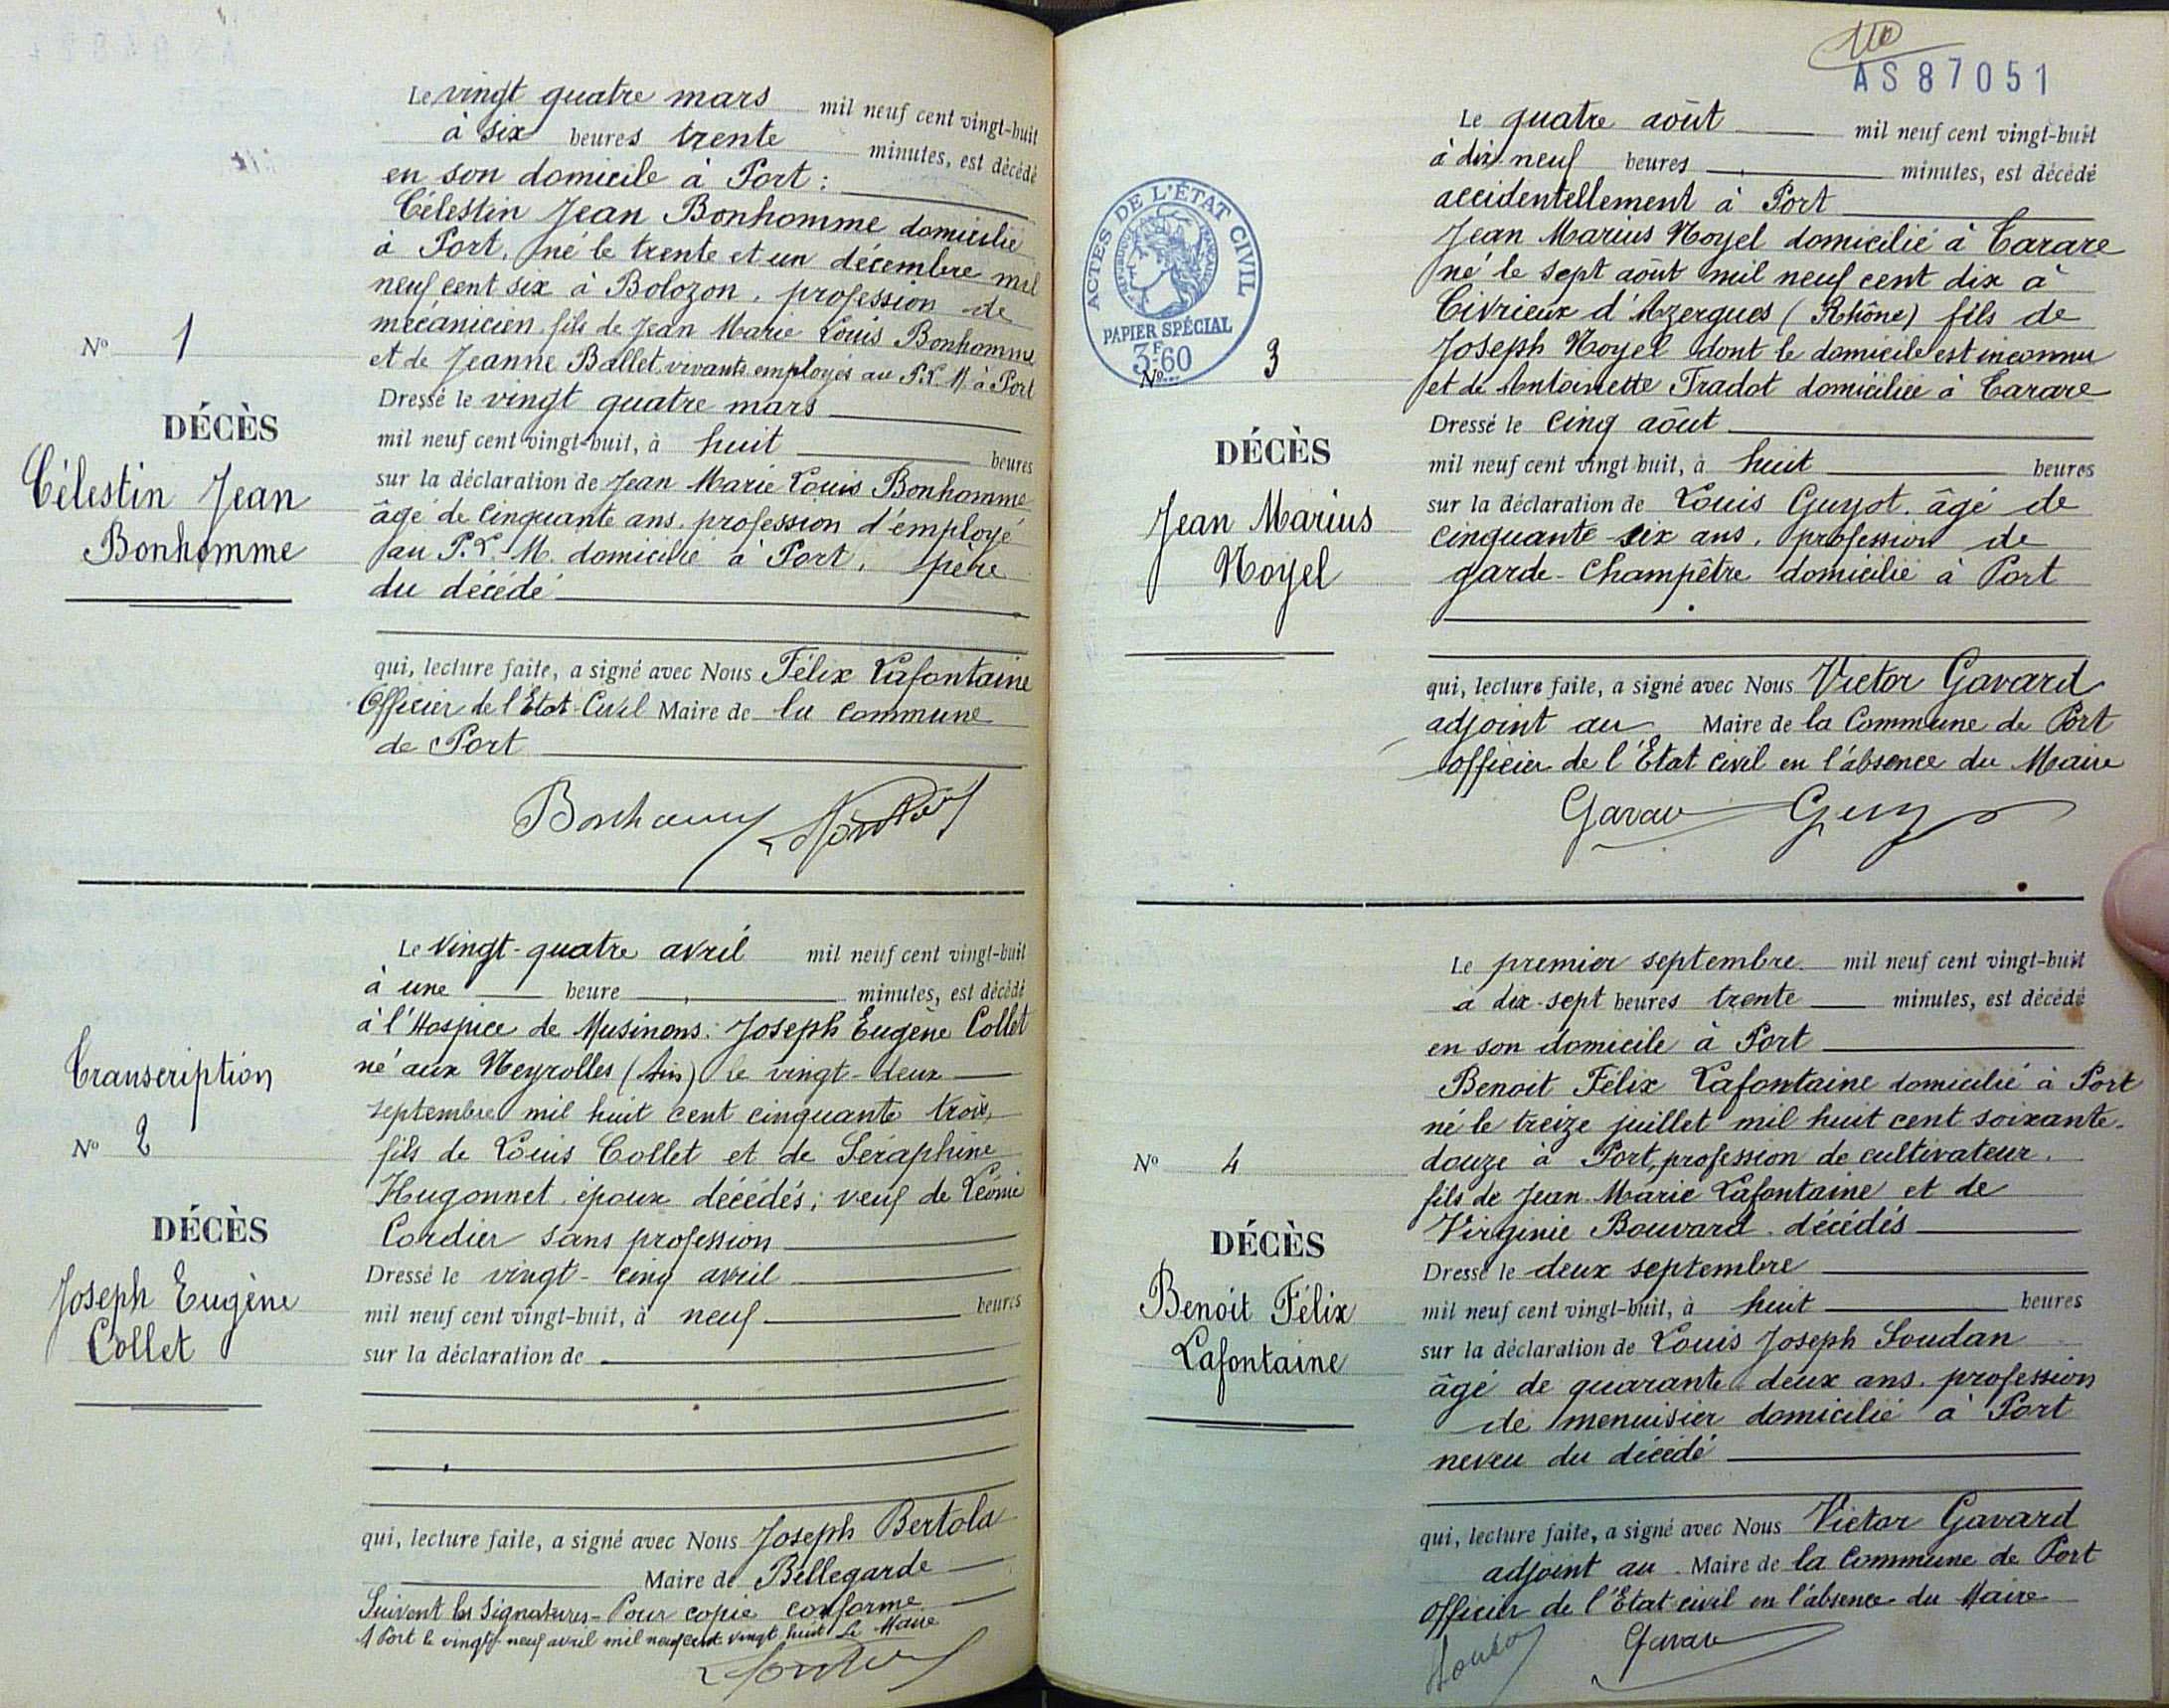 Le vingt quatre mars mil neuf cent vingt-huit
à six heures trente minutes, est décédé
en son domicile à Port :
Célestin Jean Bonhomme domicilié
à Port, né le trente et un décembre mil
neuf cent six à Bolozon, profession de
mécanicien fils de Jean Marie Louis Bonhomme
et de Jeanne Ballet vivants employés au P.L.M. à Port
N° 1
DÉCÈS
Célestin Jean
Bonhomme
Dressé le vingt quatre mars
mil neuf cent vingt-huit, à huit heures
sur la déclaration de Jean Marie Louis Bonhomme
âgé de cinquante ans, profession d'employé
au P.L.M. domicilié à Port, père
du décédé
qui, lecture faite, a signé avec Nous Félix Lafontaine
Officier de l'Etat-Civil Maire de la commune
de Port
Le vingt-quatre avril mil neuf cent vingt-huit
à une heure minutes, est décédé
à l'Hospice de Musinens : Joseph Eugène Collet
né aux Neyrolles (Ain) le vingt-deux
septembre mil huit cent cinquante trois,
fils de Louis Collet et de Séraphine
Hugonnet époux décédés ; veuf de Léonie
Cordier sans profession
Transcription
N° 2
DÉCÈS
Joseph Eugène
Collet
Dressé le vingt-cinq avril
mil neuf cent vingt-huit, à neuf heures
sur la déclaration de
qui, lecture faite, a signé avec Nous Joseph Bertola
Maire de Bellegarde
Suivent les signatures - Pour copie conforme
A Port le vingt-neuf avril mil neuf cent vingt huit Le Maire
AS87051
Le quatre août mil neuf cent vingt-huit
à dix neuf heures minutes, est décédé
accidentellement à Port
Jean Marius Noyel domicilié à Tarare
né le sept août mil neuf cent dix à
Civrieux d'Azergues (Rhône) fils de
Joseph Noyel dont le domicile est inconnu
et de Antoinette Tradot domiciliée à Tarare
ACTES DE L'ÉTAT CIVIL
RÉPUBLIQUE FRANÇAISE
PAPIER SPÉCIAL
3F.60
N° 3
DÉCÈS
Jean Marius
Noyel
Dressé le cinq août
mil neuf cent vingt-huit, à huit heures
sur la déclaration de Louis Guyot, âgé de
cinquante-six ans, profession de
garde-champêtre domicilié à Port
qui, lecture faite, a signé avec Nous Victor Gavard
adjoint au Maire de la Commune de Port
officier de l'Etat civil en l'absence du Maire
Le premier septembre mil neuf cent vingt-huit
à dix-sept heures trente minutes, est décédé
en son domicile à Port
Benoit Félix Lafontaine domicilié à Port
né le treize juillet mil huit cent soixante-
douze à Port, profession de cultivateur.
fils de Jean-Marie Lafontaine et de
Virginie Bouvard décédés
N° 4
DÉCÈS
Benoit Félix
Lafontaine
Dressé le deux septembre
mil neuf cent vingt-huit, à huit heures
sur la déclaration de Louis Joseph Soudan
âgé de quarante deux ans, profession
de menuisier domicilié à Port
neveu du décédé
qui, lecture faite, a signé avec Nous Victor Gavard
adjoint au Maire de la Commune de Port
Officier de l'Etat-civil en l'absence du Maire